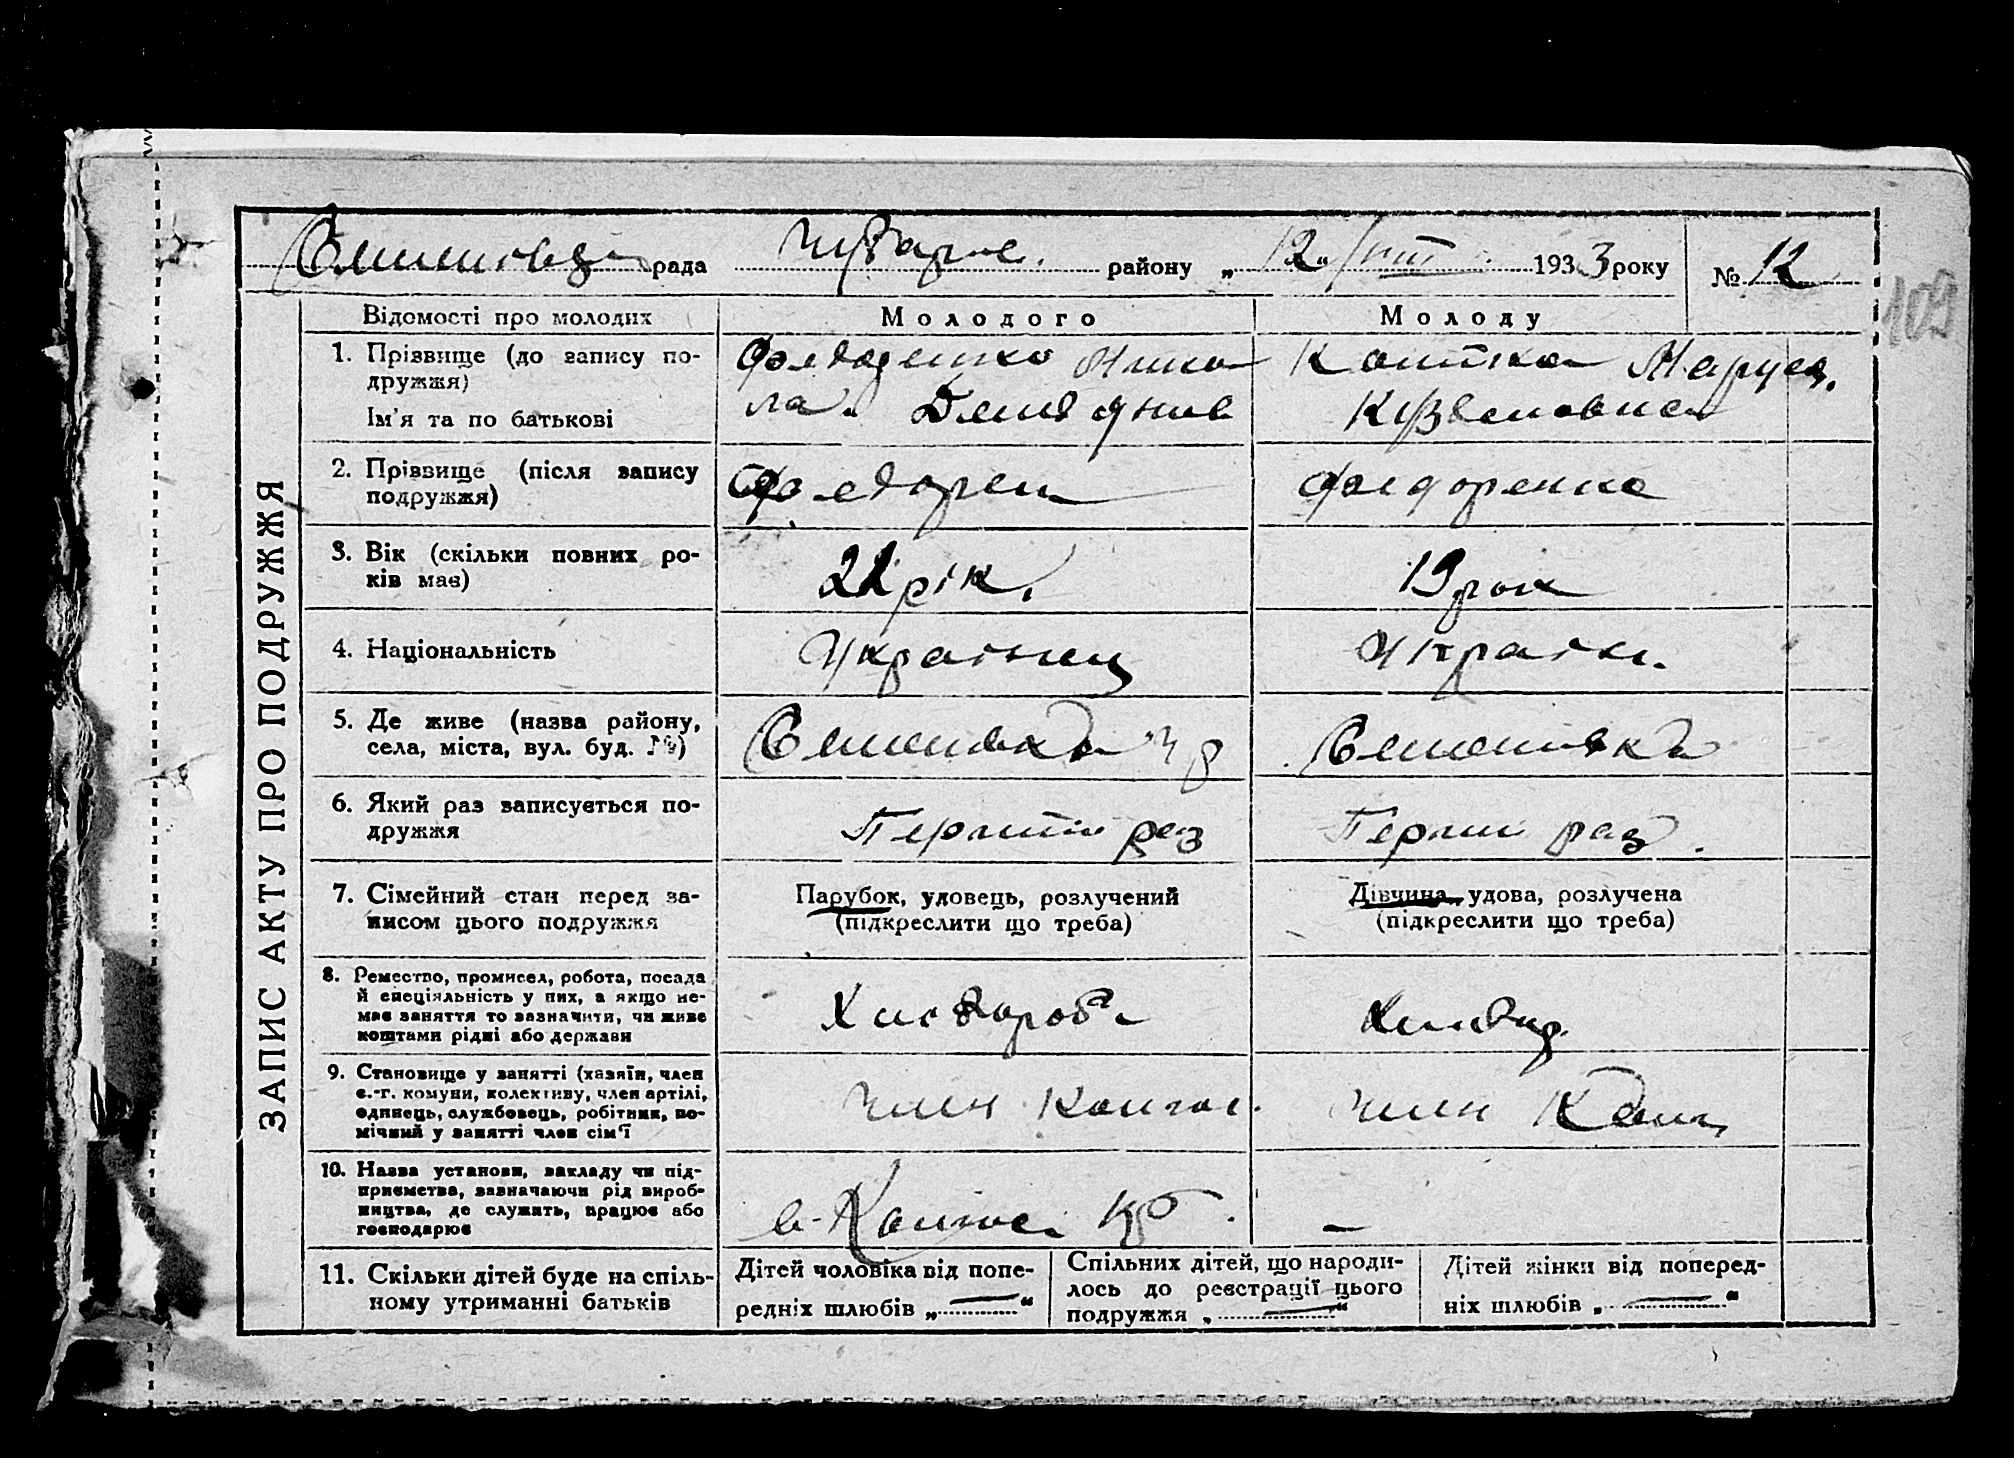 рада району „12“ VIII 1933 року № 12
109
ЗАПИС АКТУ ПРО ПОДРУЖЖЯ
Відомості про молодих
Молодого
Молоду
1. Прізвище (до запису по-
дружжя)
Ім'я та по батькові
Федоренко Мико
ла.
Маруся
Кузьмовна
2. Прізвище (після запису
подружжя)
Федорен
Федоренко
3. Вік (скільки повних ро-
ків має)
рік.
19 рок
4. Національність
Українец
Україн.
5. Де живе (назва району,
села, міста, вул. буд. №)
6. Який раз записується по-
дружжя
раз
Перши раз.
7. Сімейний стан перед за-
писом цього подружжя
Парубок, удовець, розлучений
(підкреслити що треба)
Дівчина, удова, розлучена
(підкреслити що треба)
8. Ремество, промисел, робота, посада
й спеціяльність у них, а якщо не-
має заняття то зазначити, чи живе
коштами рідні або держави
Хлібороб
Хлібор.
9. Становище у занятті (хазяїн, член
с.-г. комуни, колективу, член артілі,
одинець, службовець, робітник, по-
мічний у занятті член сім'ї
член колгос.
член Колг.
10. Назва установи, закладу чи під-
приємства, зазначаючи рід вироб-
ництва, де служить, працює або
господарює
в Колгосі
–
11. Скільки дітей буде на спіль-
ному утриманні батьків
Дітей чоловіка від попе-
редніх шлюбів „—“
Спільних дітей, що народи-
лось до реєстрації цього
подружжя „—“
Дітей жінки від поперед-
ніх шлюбів „—“